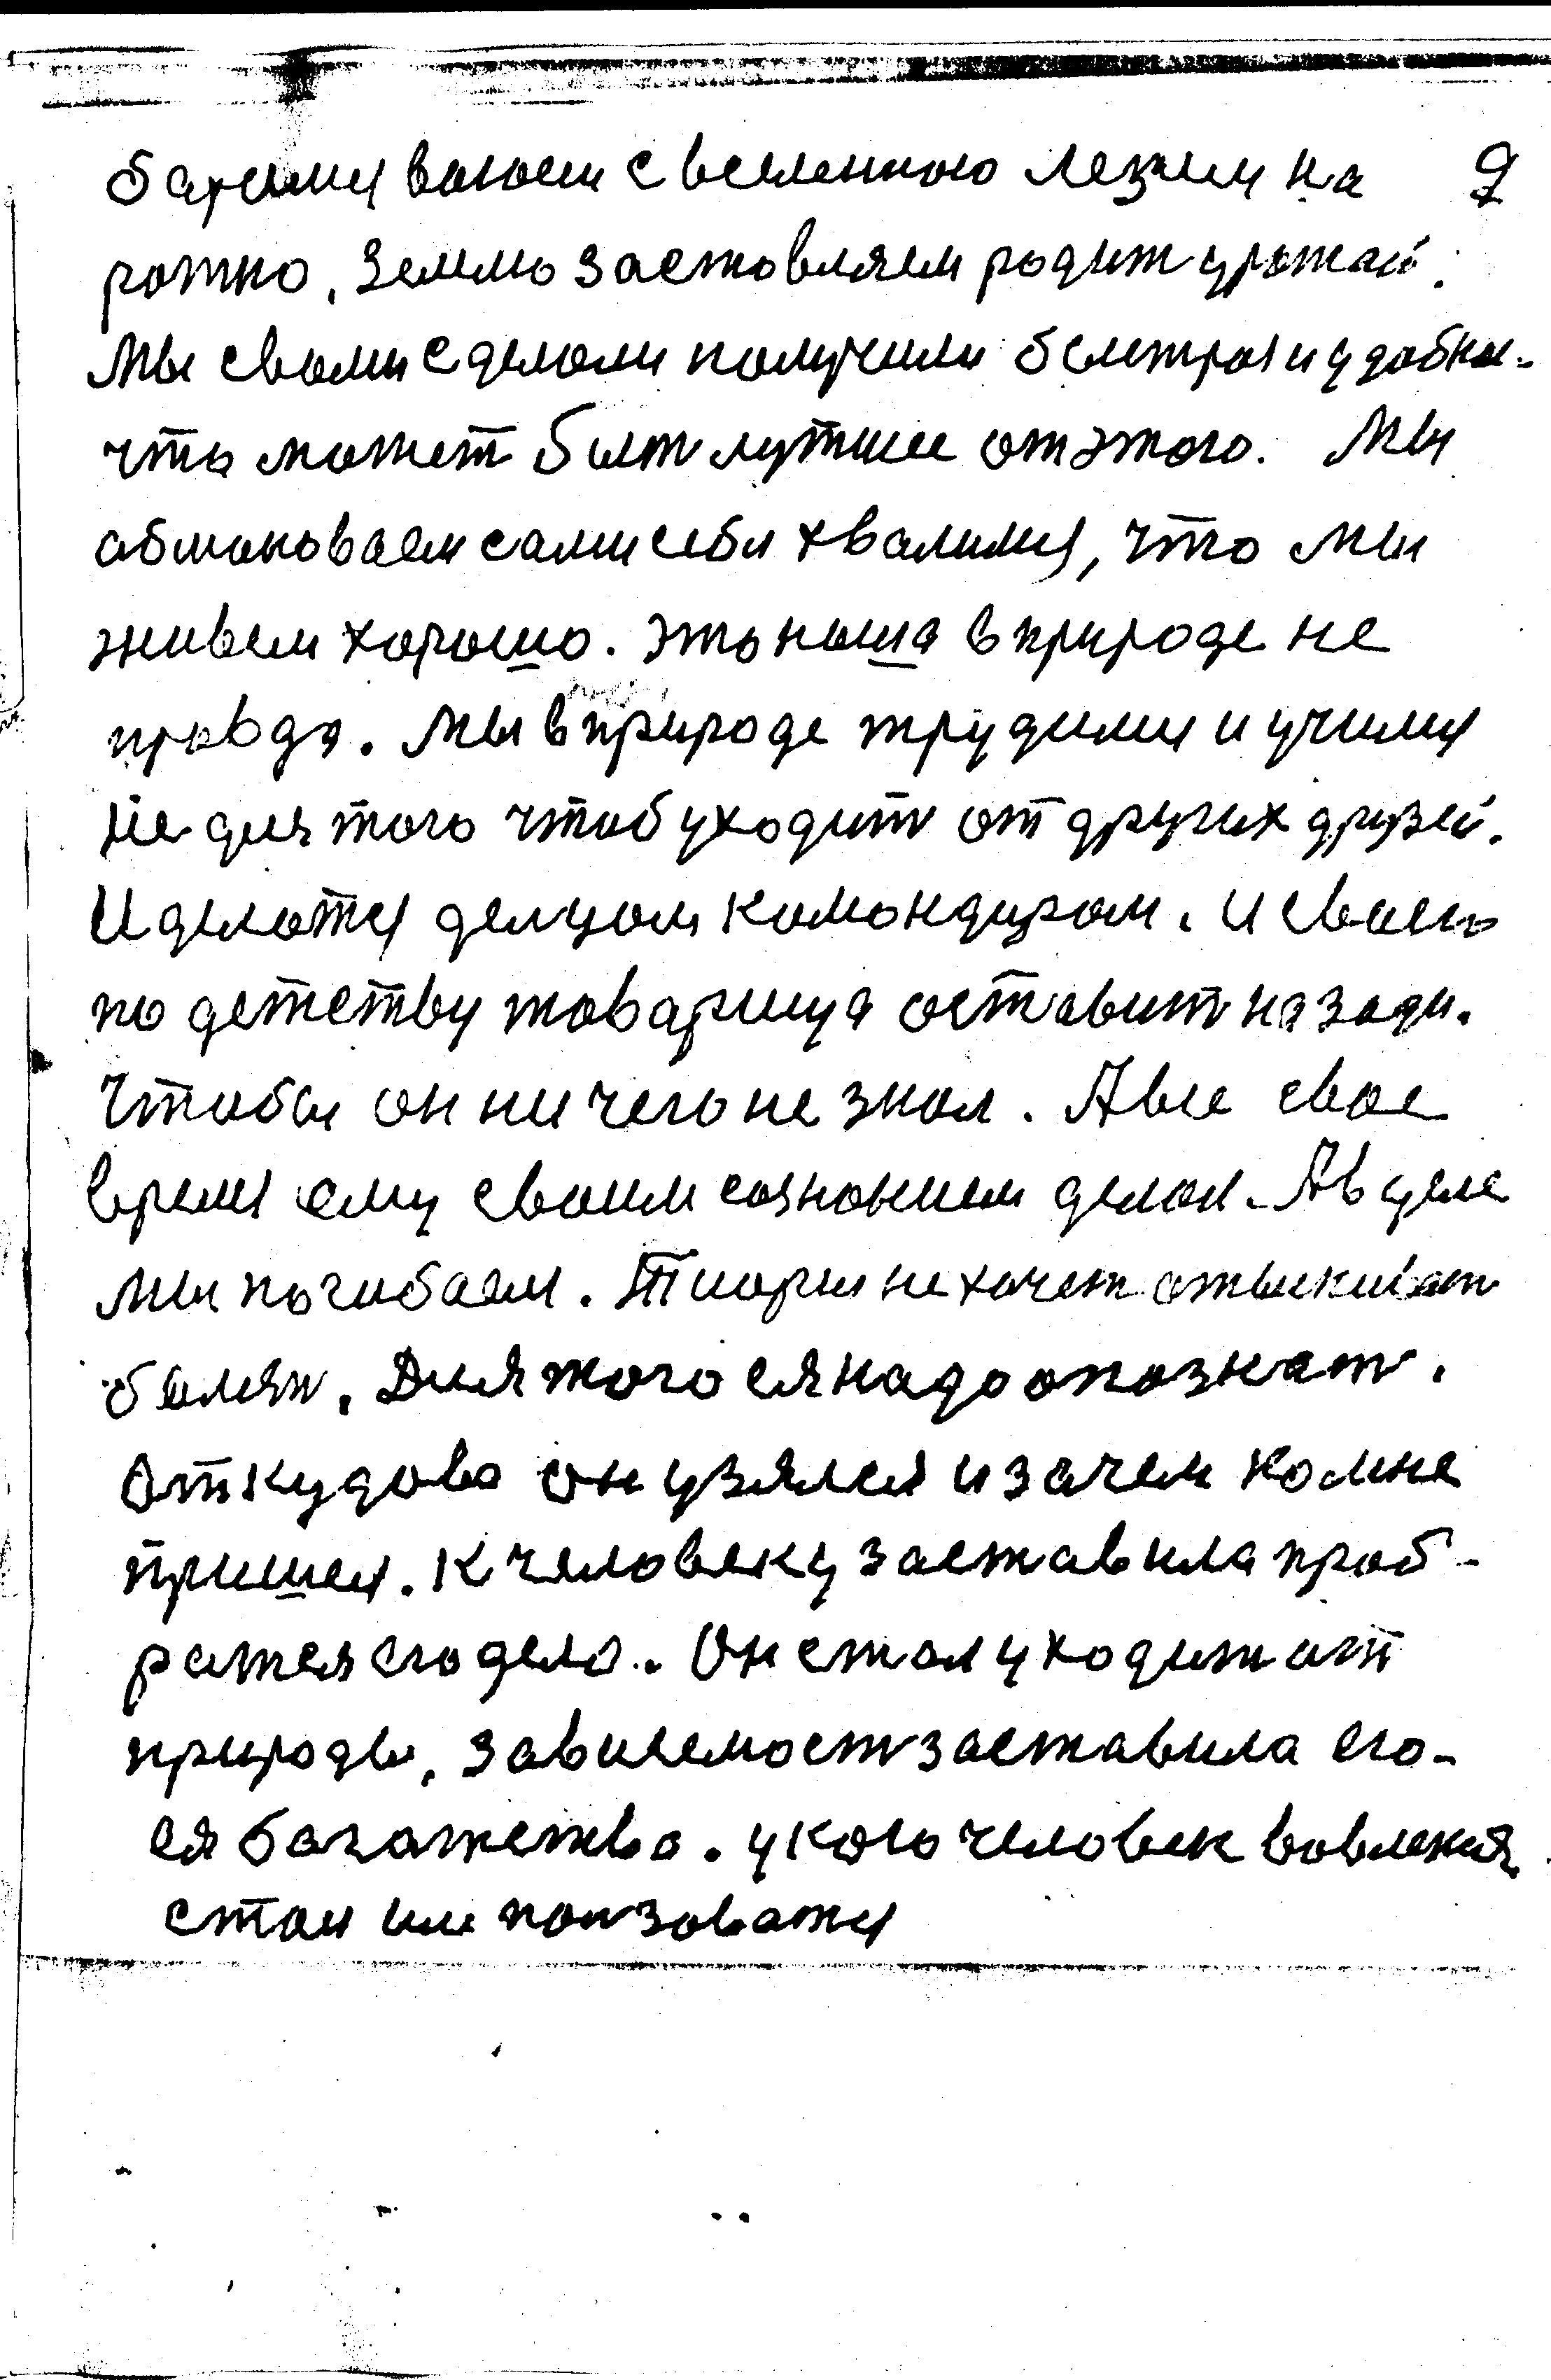 баремся воюем с вселенною лезем на 9
ротно, землю застовляем родит урожай.
Мы своми сделоли получили быстроя и удобная.
что может быт лутшее от этого. Мы
обмановаем сами себя хвалимся, что мы
живем хорошо. Это наша в природе не
правда. Мы в природе трудимся и учимся
не для того чтоб уходить от других друзей.
И делатся делцом командиром. и своего
по детству товарища оставить на зади.
Чтобы он ни чего не знал. А все свое
время ему своим сазнанием делал. А в целе
мы погибаем. Тиория не хочет отыскиват
болезн. Для того ея надо опознать.
Откудова он узялся и зачем ко мне
пришел. К человеку заставила проб-
ратся его дело. Он стал уходит от
природы, зависемость заставила его-
ея богатжство. у кого человек вовлекся
стал им ползоватся